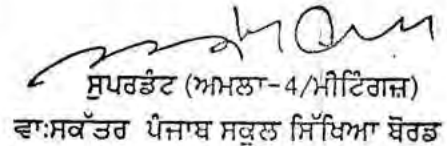 ਸੁਪਰਡੰਟ (ਅਮਲਾ-4/ਮੀਟਿੰਗਜ਼)
ਵਾ:ਸਕੱਤਰ ਪੰਜਾਬ ਸਕੂਲ ਸਿੱਖਿਆ ਬੋਰਡ